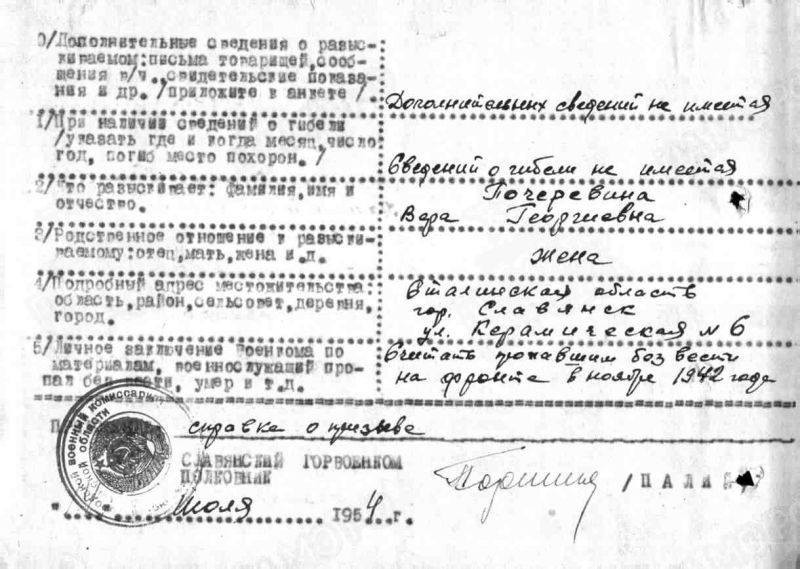 0/Дополнительные сведения о разыс-
киваемом: письма товарищей, сооб-
щения в/ч., свидетельские показа-
ния и др. /приложите к анкете/
Дополнительных сведений не имеется
1/При наличии сведений о гибели
/указать где и когда месяц, число
год, погиб место похорон./
Сведений о гибели не имеется
2/Кто разыскивает: фамилия, имя и
отчество.
Почеревина
Вера Георгиевна
3/Родственное отношение к разыски-
ваемому: отец, мать, жена и.д.
Жена
4/Подробный адрес местожительства:
область, район, сельсовет, деревня,
город.
Сталинская область
гор. Славянск
ул. Керамическая № 6
5/Личное заключение Военкома по
материалам, военнослужащий про-
пал без вести, умер и т.д.
Считать пропавшим без вести
на фронте в ноябре 1942 года
справка о призыве
СЛАВЯНСКИЙ ГОРВОЕНКОМ
ПОЛКОВНИК
/ПАЛИ
июля 1954 г.